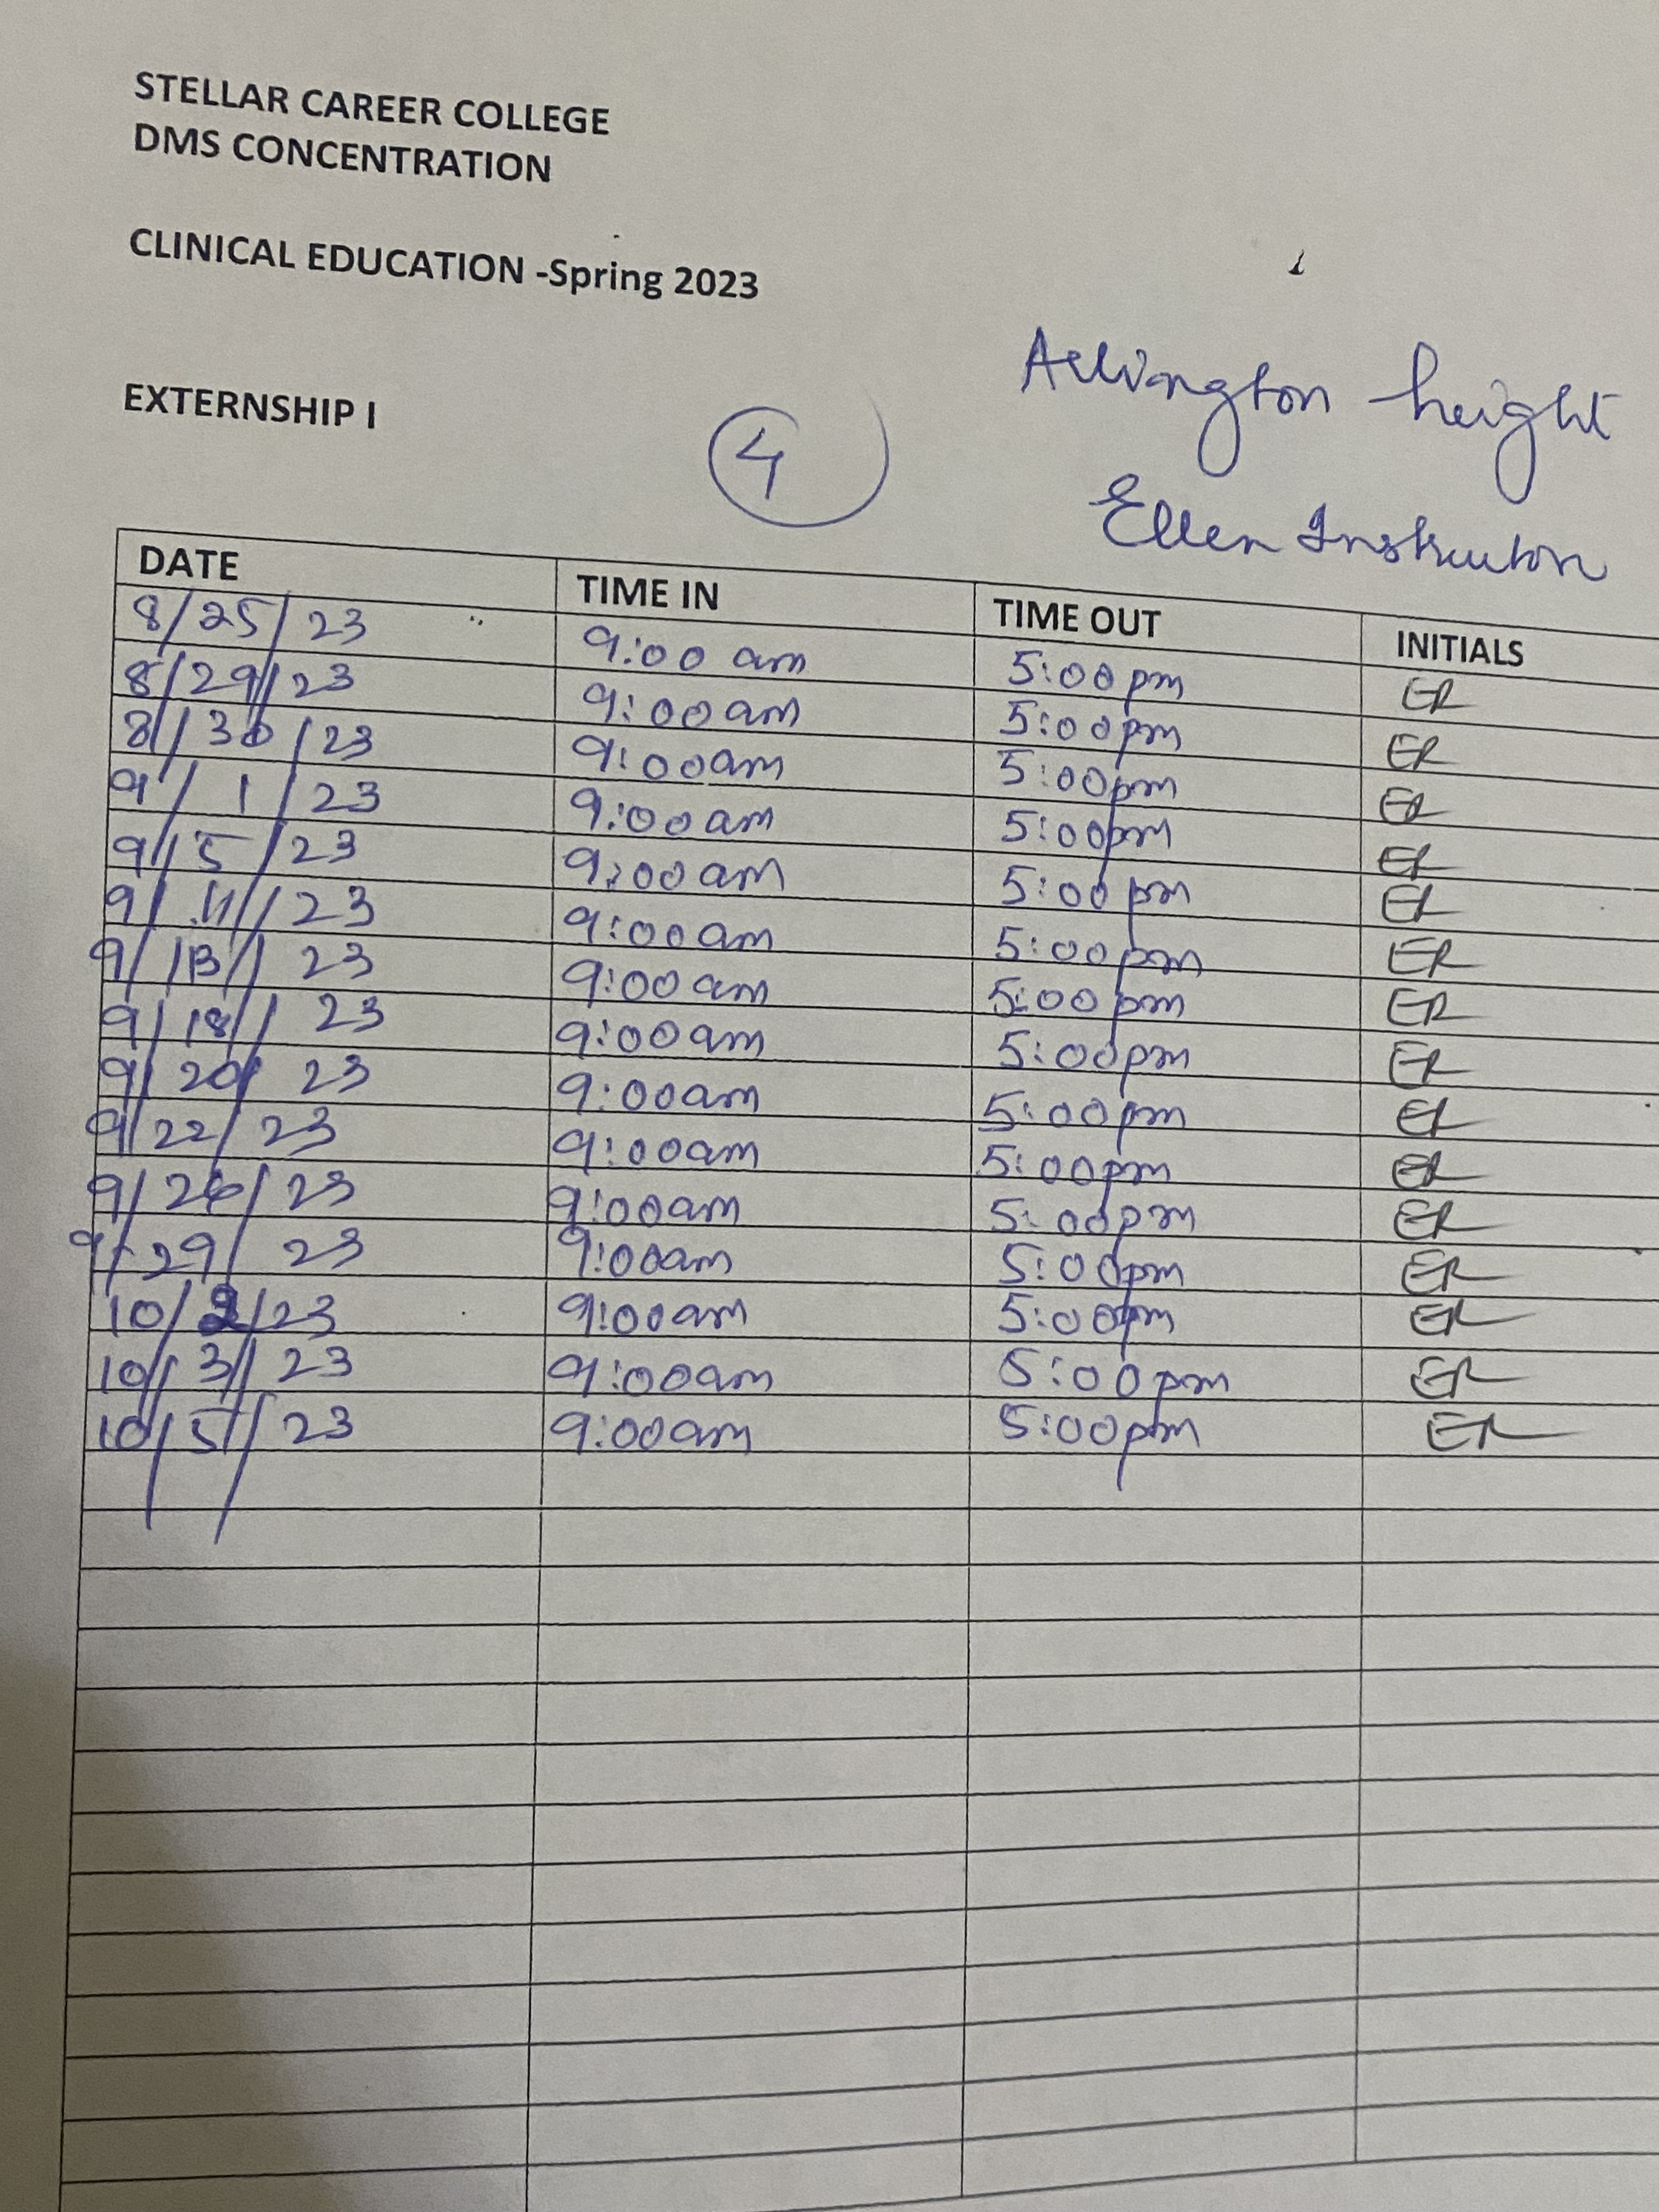 STELLAR CAREER COLLEGE
DMS CONCENTRATION
CLINICAL EDUCATION -Spring 2023
EXTERNSHIP I
4
Arlington height
Ellen Instructor
DATE TIME IN TIME OUT INITIALS
8/25/23 9:00 am 5:00pm ER
8/29/23 9:00am 5:00pm ER
8/30/23 9:00am 5:00pm ER
9/1/23 9:00am 5:00pm ER
9/5/23 9:00am 5:00pm ER
9/11/23 9:00am 5:00pm ER
9/13/23 9:00am 5:00pm ER
9/18/23 9:00am 5:00pm ER
9/20/23 9:00am 5:00pm ER
9/22/23 9:00am 5:00pm ER
9/26/23 9:00am 5:00pm ER
9/29/23 9:00am 5:00pm ER
10/2/23 9:00am 5:00pm ER
10/3/23 9:00am 5:00pm ER
10/5/23 9:00am 5:00pm ER